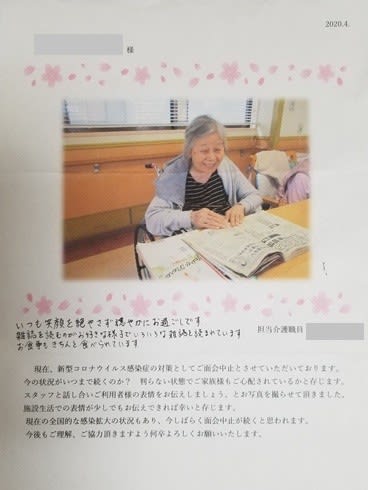 2020.4.
様
いつも笑顔を絶やさず穏やかにお過ごしです
雑誌を読むのがお好きな様子でいろいろな雑誌を読まれています
お食事もきちんと食べられています
担当介護職員
現在、新型コロナウイルス感染症の対策としてご面会中止とさせていただいております。
今の状況がいつまで続くのか？ 判らない状態でご家族様もご心配されているかと存じます。
スタッフと話し合いご利用者様の表情をお伝えしましょう、とお写真を撮らせて頂きました。
施設生活での表情が少しでもお伝えできれば幸いと存じます。
現在の全国的な感染拡大の状況もあり、今しばらく面会中止が続くと思われます。
今後もご理解、ご協力頂きますよう何卒よろしくお願いいたします。